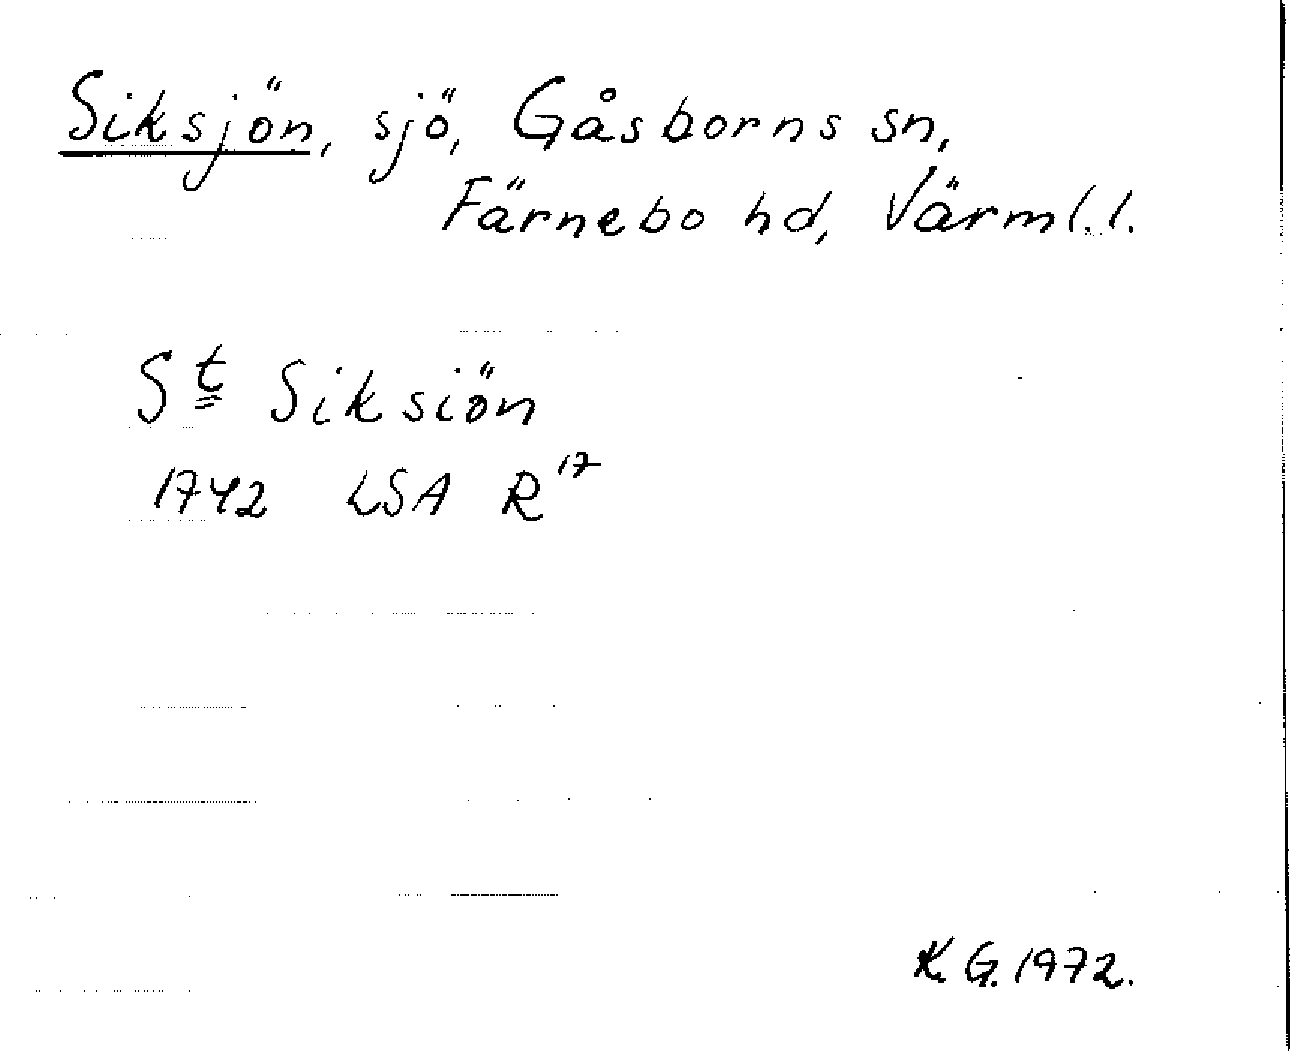 Siksjön, sjö, Gåsborns sn,
Färnebo hd, Värml.l.
St Siksiön
1742 LSA R17
K.G. 1972.